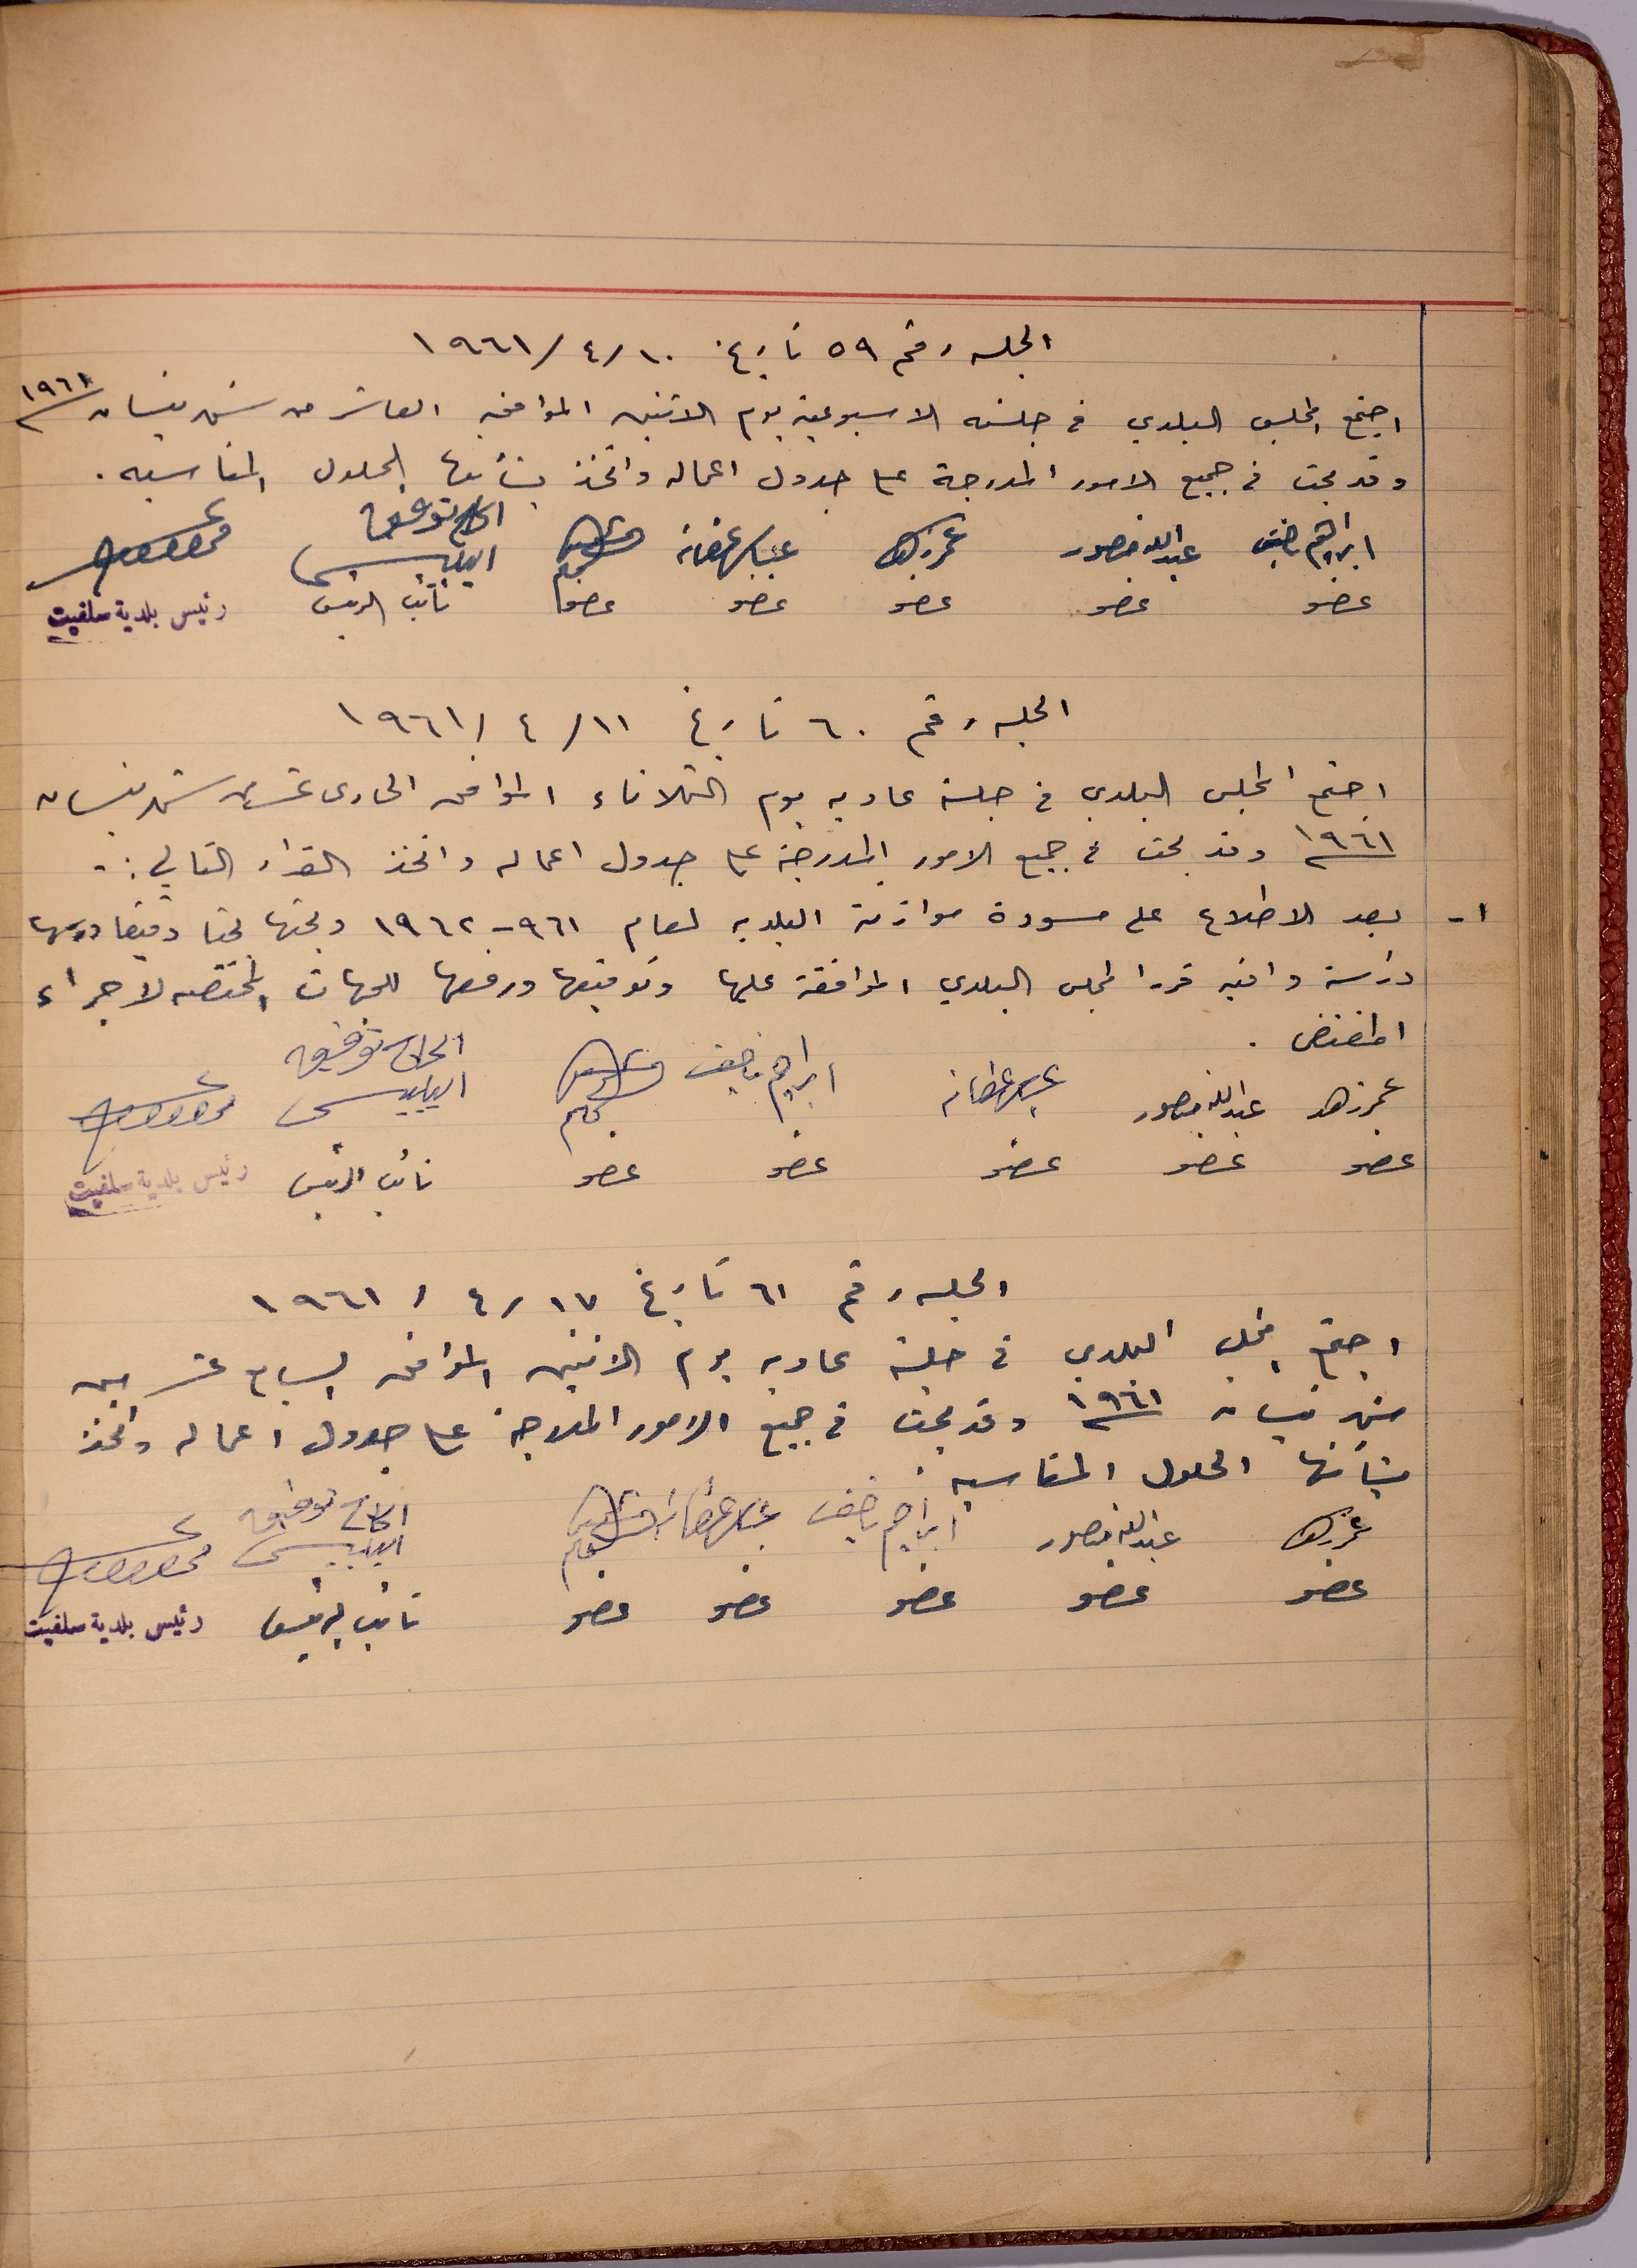 الجلسه رقم ٥٩ تاريخ ١٠/٤/١٩٦١
اجتمع المجلس البلدي في جلسته الاسبوعية يوم الاثنين الموافق العاشر من شهر نيسان ١٩٦١
وقد بحث في جميع الامور المدرجة على جدول اعماله واتخذ بشأنها الحلول المناسبه .
ابراهيم ناصيف عبدالله منصور عمر زهد الحاج توفيق
عضو عضو عضو عضو عضو نائب الرئيس رئيس بلدية سلفيت
الجلسه رقم ٦٠ تاريخ ١١/٤/١٩٦١
اجتمع المجلس البلدي في جلسة عاديه يوم الثلاثاء الموافق الحادى عشر من شهر نيسان
١٩٦١ وقد بحث في جميع الامور المدرجة على جدول اعماله واتخذ القرار التالي :-
١- بعد الاطلاع على مسودة موازنة البلديه لعام ٩٦١-١٩٦٢ وبحثها بحثا دقيقا ودرسها
دراسة وافيه قرر المجلس البلدي الموافقة عليها وتوقيعها ورفعها للجهات المختصه لاجراء
المقتضى .
عمر زهد عبدالله منصور ابراهيم ناصيف الحاج توفيق
عضو عضو عضو عضو عضو نائب الرئيس رئيس بلدية سلفيت
الجلسه رقم ٦١ تاريخ ١٧/٤/١٩٦١
اجتمع المجلس البلدي في جلسة عاديه يوم الاثنين الموافق السابع عشر من
شهر نيسان ١٩٦١ وقد بحث في جميع الامور المدرجة على جدول اعماله واتخذ
بشأنها الحلول المناسبه .
عمر زهد عبدالله منصور ابراهيم ناصيف الحاج توفيق
عضو عضو عضو عضو عضو نائب الرئيس رئيس بلدية سلفيت